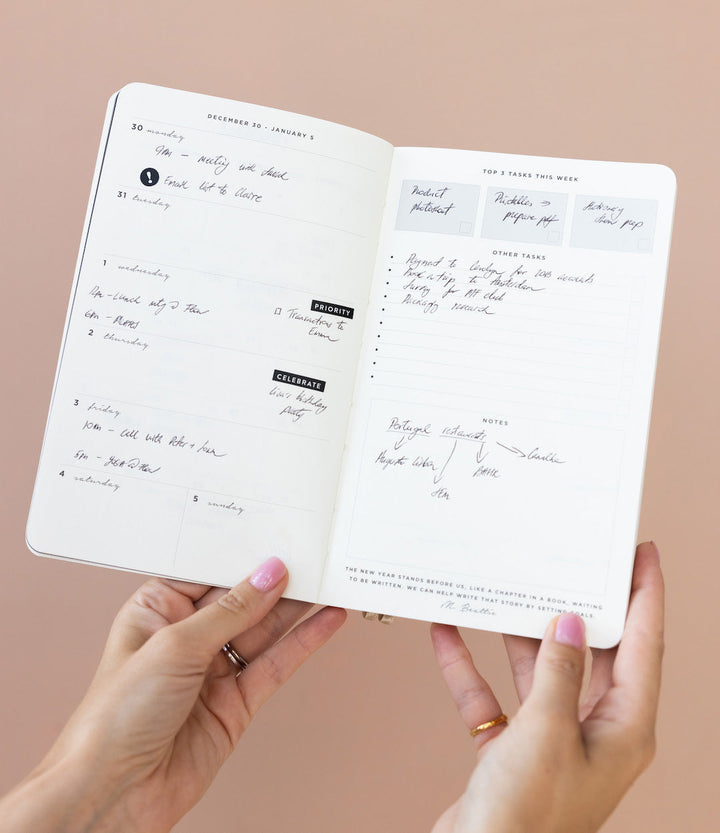 DECEMBER 30 - JANUARY 5
30 monday
9AM - Meeting with
! Email list to Claire
31 tuesday
1 wednesday
12PM - Lunch mtg @
6PM - PILATES
PRIORITY
Transactions to
Emma
2 thursday
CELEBRATE
Lisa's birthday
party
3 friday
10AM - Call with Peter +
5PM - YOGA @
4 saturday
5 sunday
TOP 3 TASKS THIS WEEK
Product
photoshoot
Printables →
prepare pdf
prep
OTHER TASKS
Payment to for
Book a trip to Amsterdam
Survey for
Packaging research
NOTES
Portugal restaurants
THE NEW YEAR STANDS BEFORE US, LIKE A CHAPTER IN A BOOK, WAITING
TO BE WRITTEN. WE CAN HELP WRITE THAT STORY BY SETTING GOALS.
M. Beattie